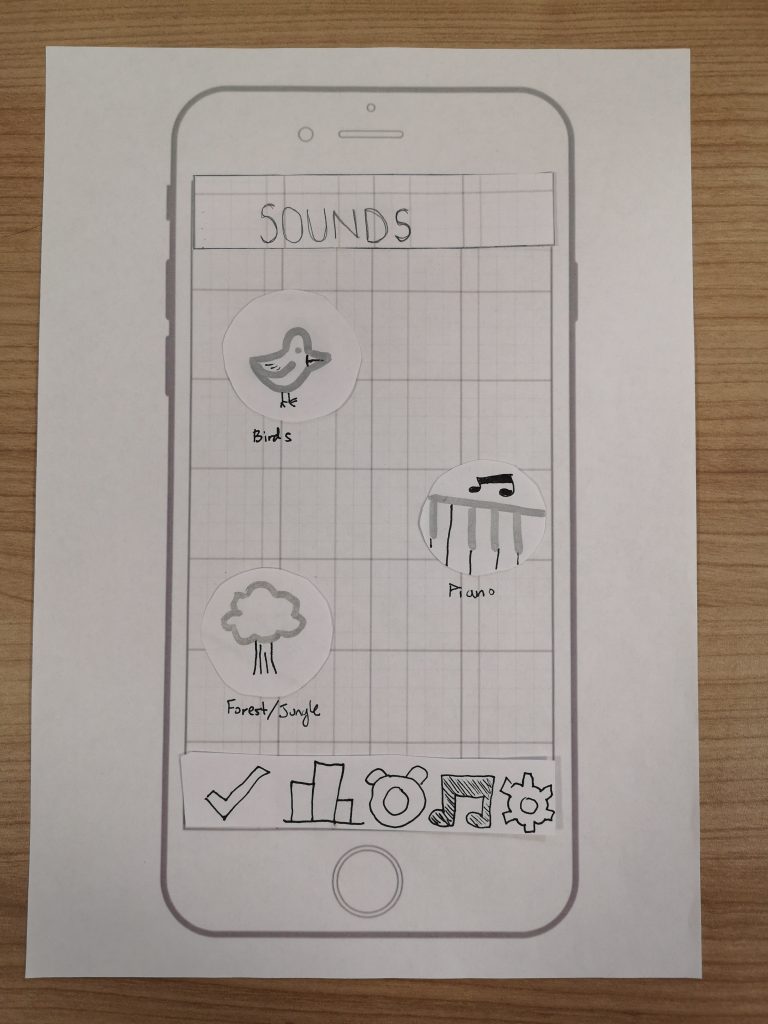 SOUNDS
Birds
Piano
Forest/Jungle